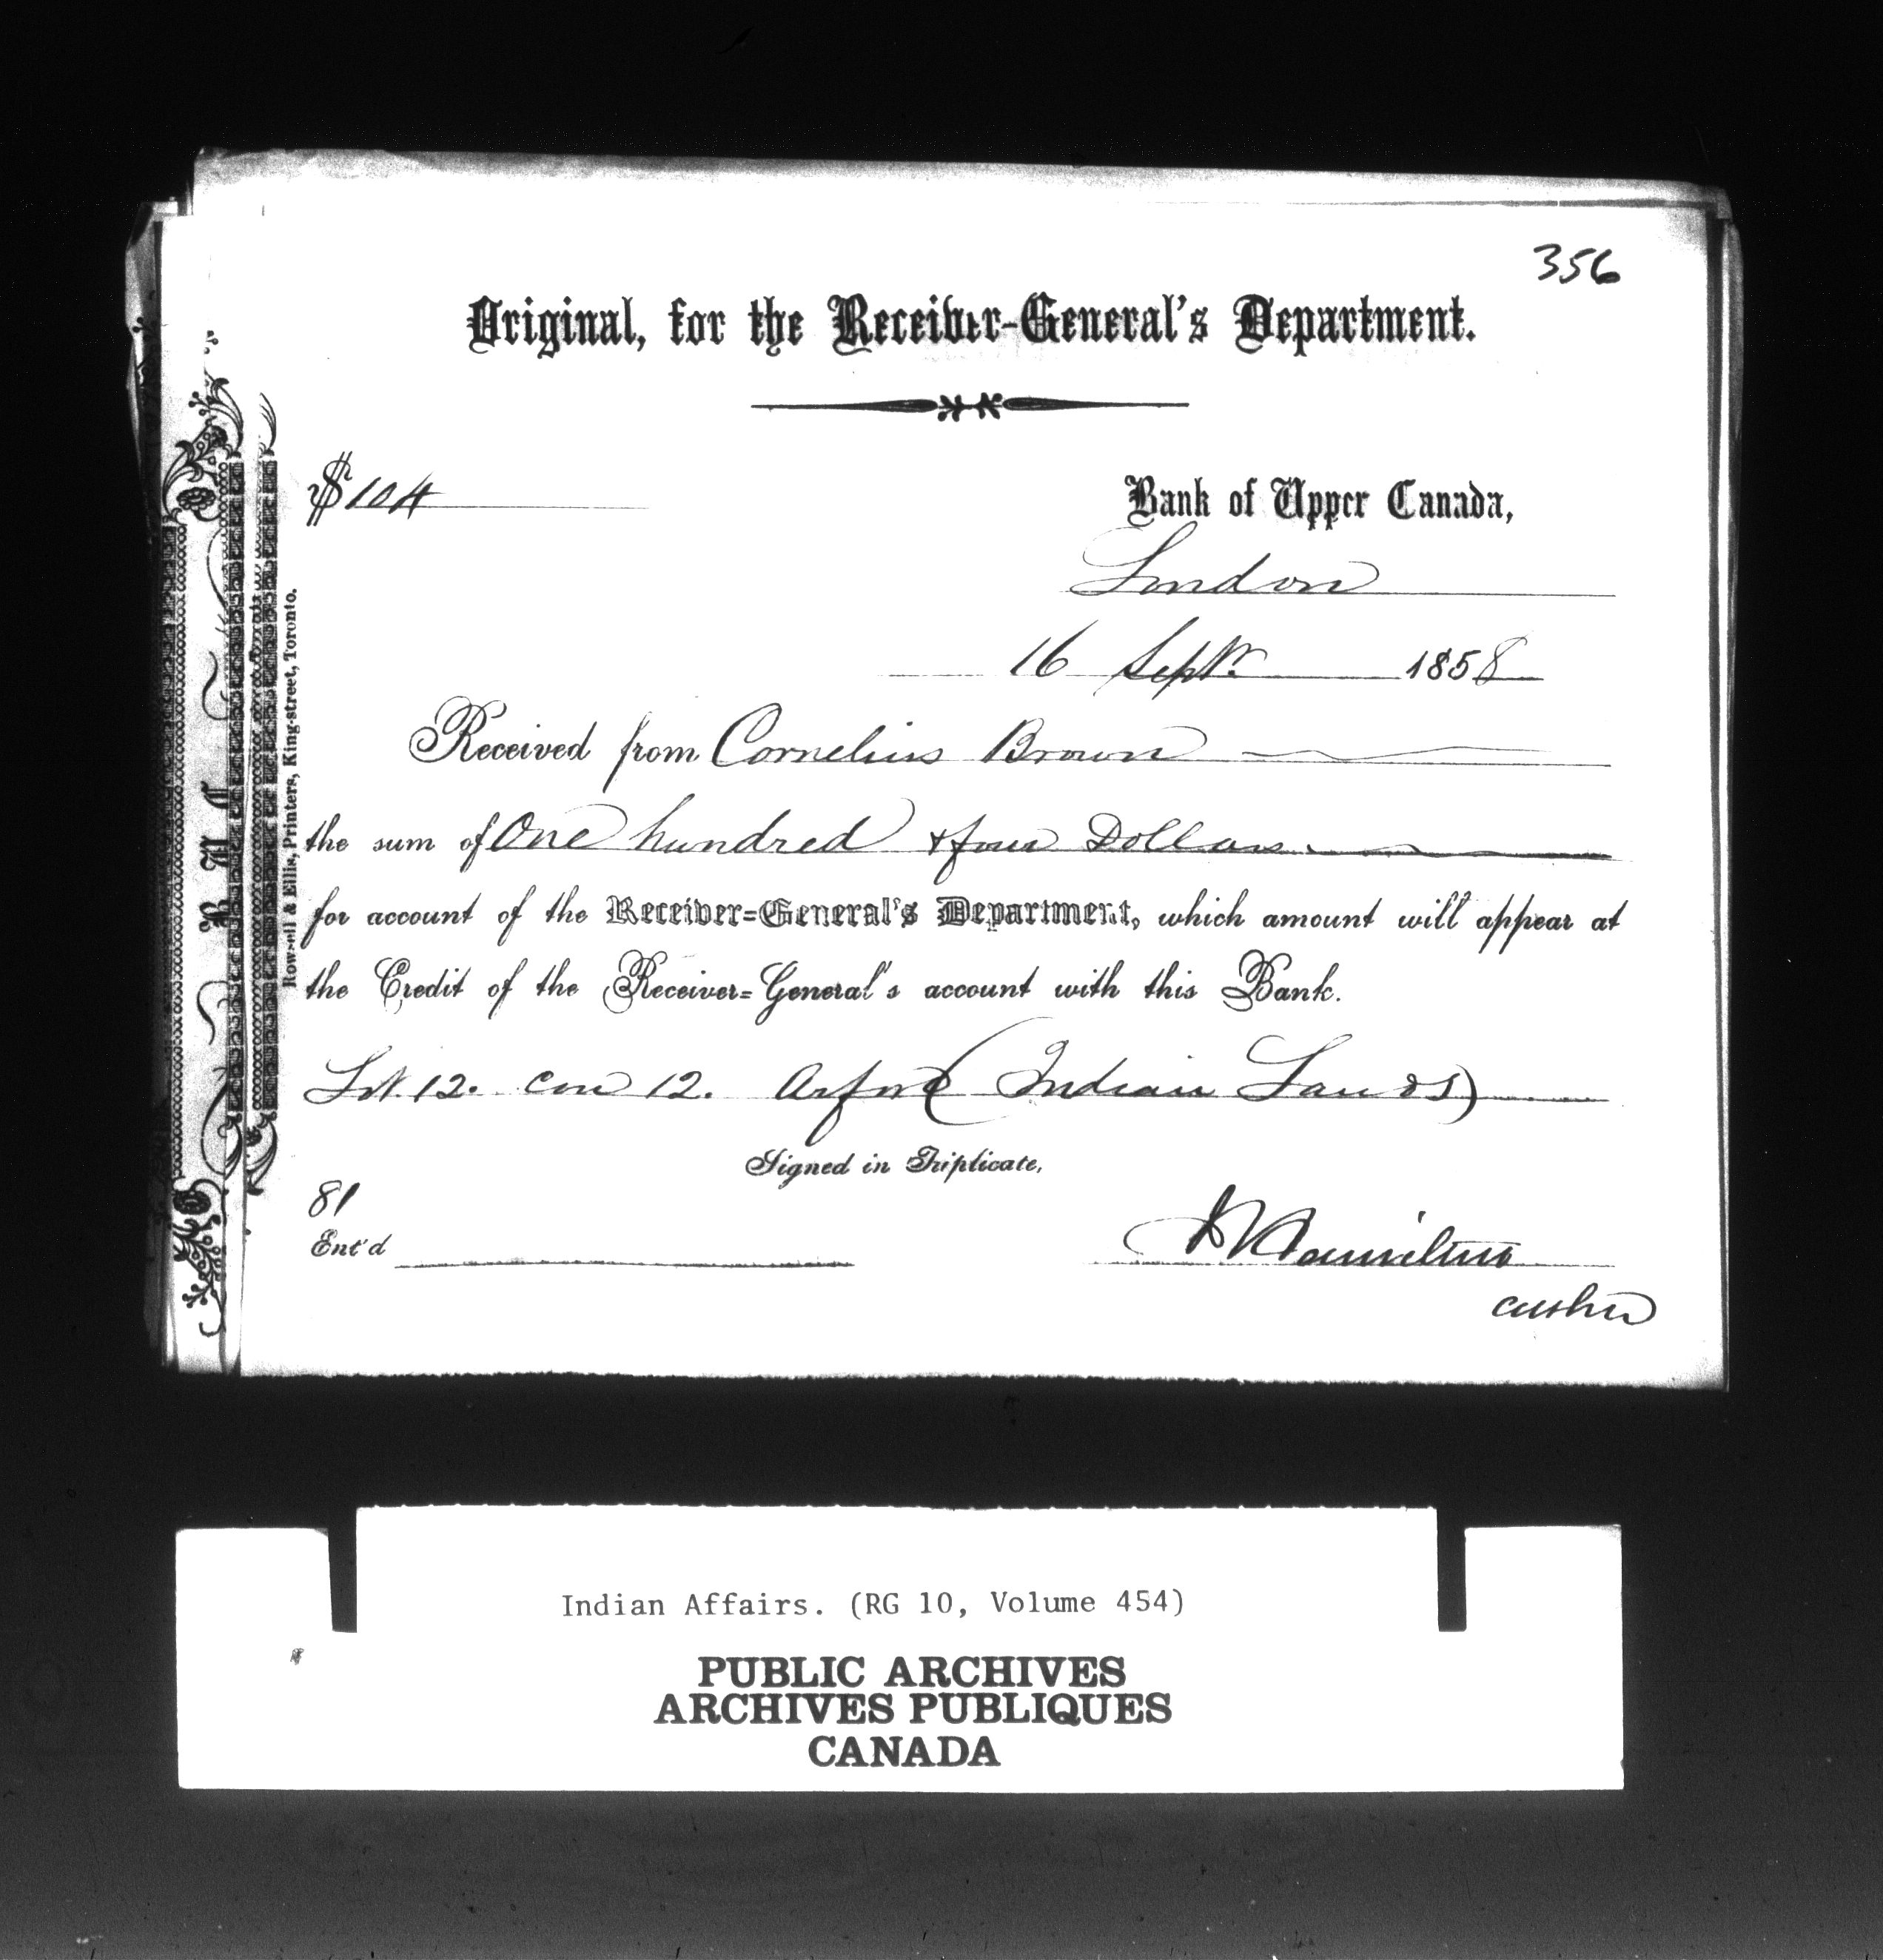 356
Original, for the Receiver-General's Department.
$104
Bank of Upper Canada,
London
16 Sepr. 1858
Received from Cornelius Brown
the sum of One hundred & four Dollars
for account of the Receiver-General's Department, which amount will appear at
the Credit of the Receiver-General's account with this Bank.
Lot. 12. con 12. Orford (Indian Lands)
Signed in Triplicate,
81
Ent'd
Hamilton
cashr
Rowsell & Ellis, Printers, King-street, Toronto.
Indian Affairs. (RG 10, Volume 454)
PUBLIC ARCHIVES
ARCHIVES PUBLIQUES
CANADA